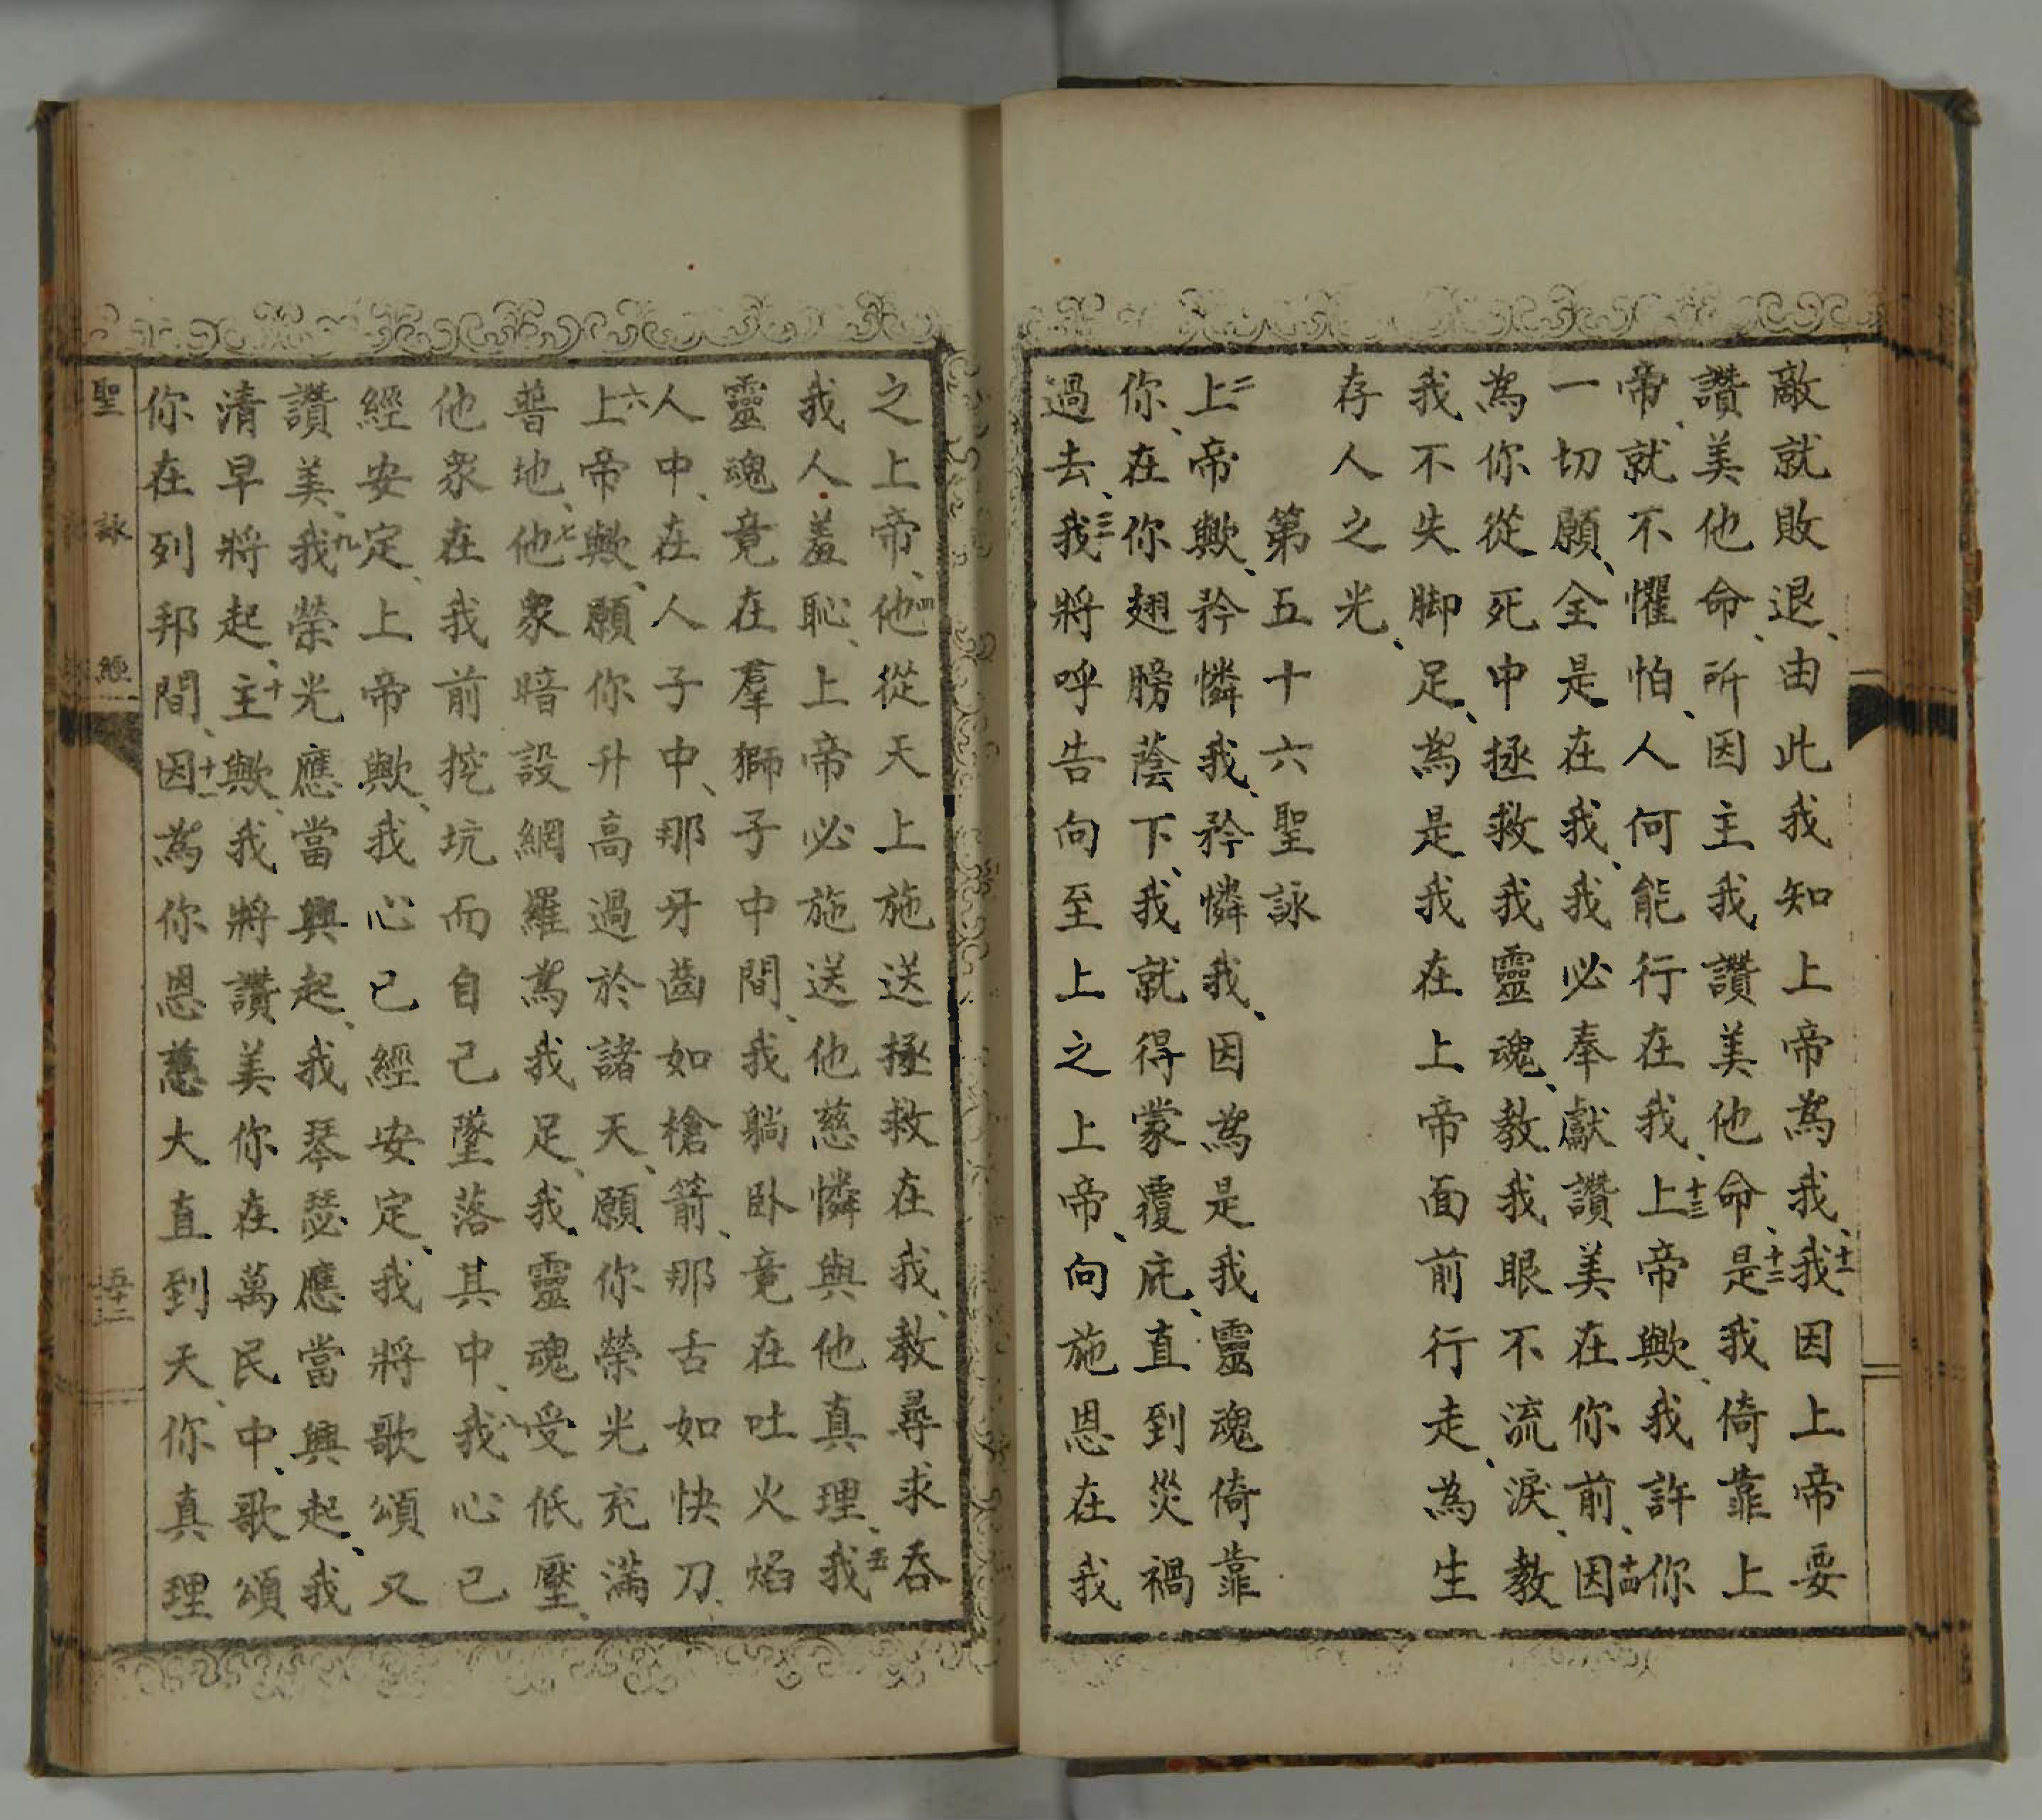 敵就敗退、由此我知上帝為我、十一我因上帝要
讚美他命、所因主我讚美他命、十二是我倚靠上
帝、就不懼怕、人何能行在我、十三上帝歟、我許你
一切願、全是在我、我必奉獻讚美在你前、十四因
為你從死中拯救我靈魂、教我眼不流淚、教
我不失脚足、為是我在上帝面前行走、為生
存人之光、
第五十六聖詠
二上帝歟、矜憐我、矜憐我、因為是我靈魂倚靠
你、在你翅膀蔭下、我就得蒙覆庇、直到災禍
過去、三我將呼告向至上之上帝、向施恩在我
之上帝、四他從天上施送拯救在我、教尋求吞
我人羞恥、上帝必施送他慈憐與他真理、五我
靈魂竟在羣獅子中間、我躺卧竟在吐火焰
人中、在人人子中、那牙齒如槍箭、那舌如快刀、
六上帝歟、願你升高過於諸天、願你榮光充滿
普地、七他衆暗設網羅為我足、我靈魂受低壓、
他衆在我前挖坑而自己墜落其中、八我心已
經安定、上帝歟、我心已經安定、我將歌頌又
讚美、九我榮光應當興起、我琴瑟應當興起、我
清早將起、十主歟、我將讚美你在萬民中、歌頌
你在列邦間、十一因為你恩慈大直到天、你真理
聖詠經
五十二